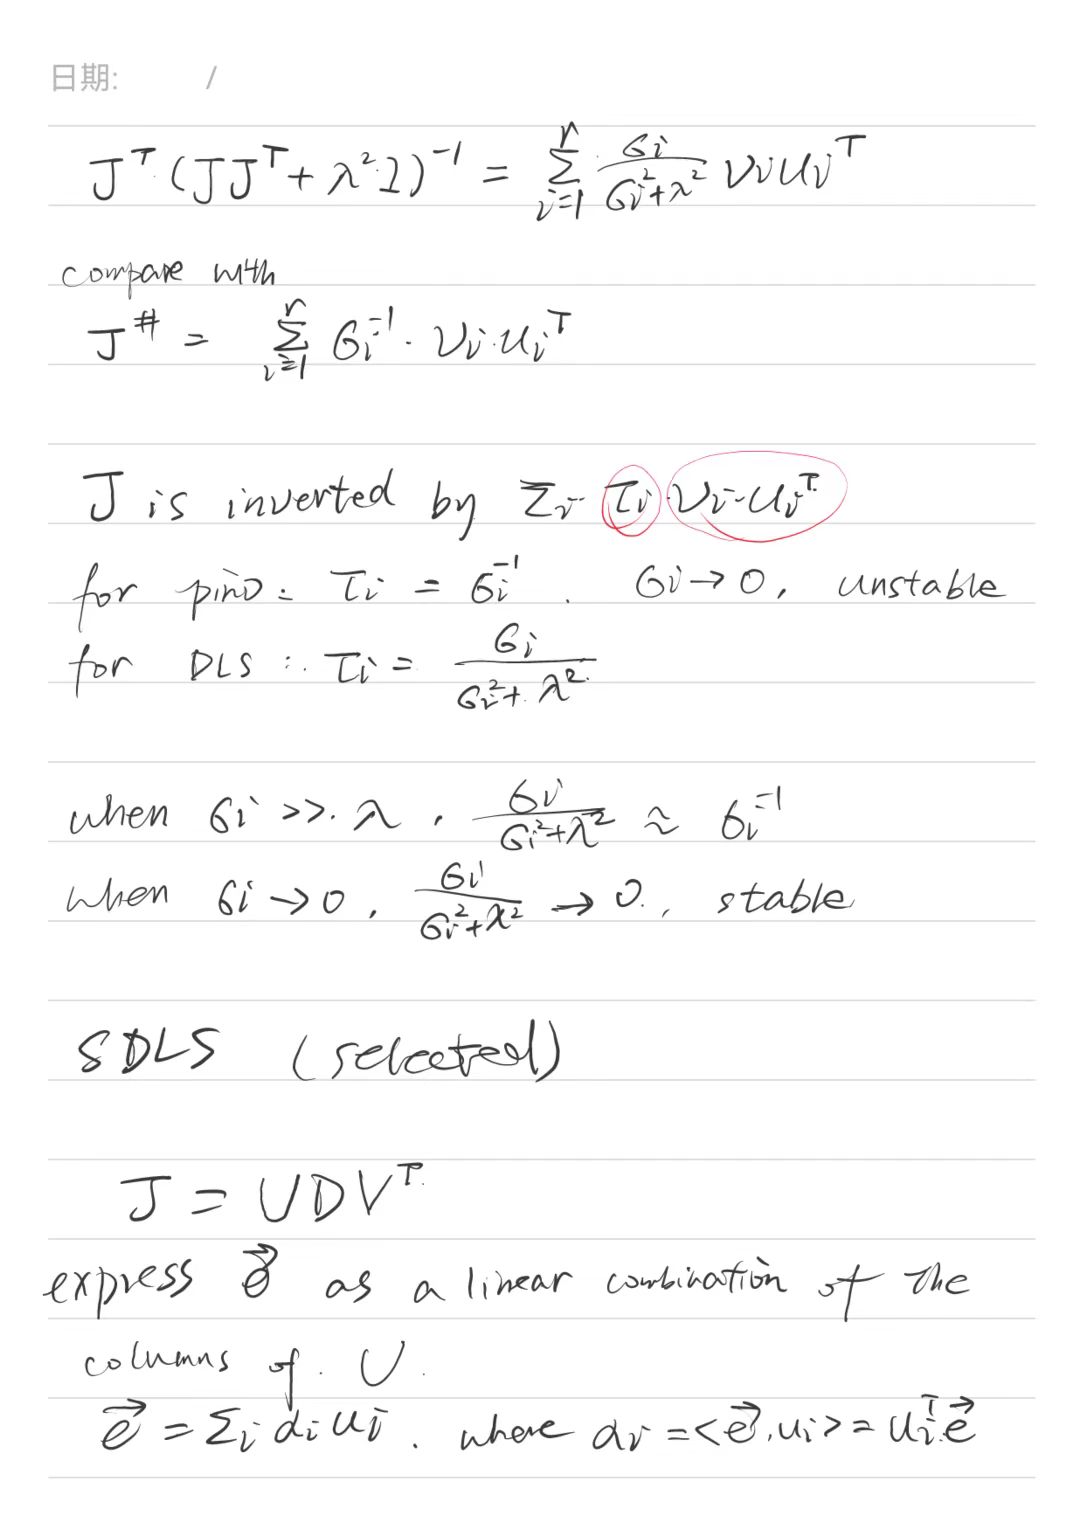 日期: /
J^T (JJ^T + λ^2 I)^{-1} = Σ_{i=1}^{r} σi/(σi^2+λ^2) vi ui^T
compare with
J^# = Σ_{i=1}^{r} σi^{-1} · vi · ui^T
J is inverted by Σi τi vi · ui^T
for pino: τi = σi^{-1}. σi → 0, unstable
for DLS: τi = σi/(σi^2 + λ^2)
when σi >> λ, σi/(σi^2+λ^2) ≈ σi^{-1}
when σi → 0, σi/(σi^2+λ^2) → 0, stable
SDLS (selected)
J = UDV^T
express e⃗ as a linear combination of the
columns of U.
e⃗ = Σi αi ui. where αi = <e⃗, ui> = ui^T e⃗